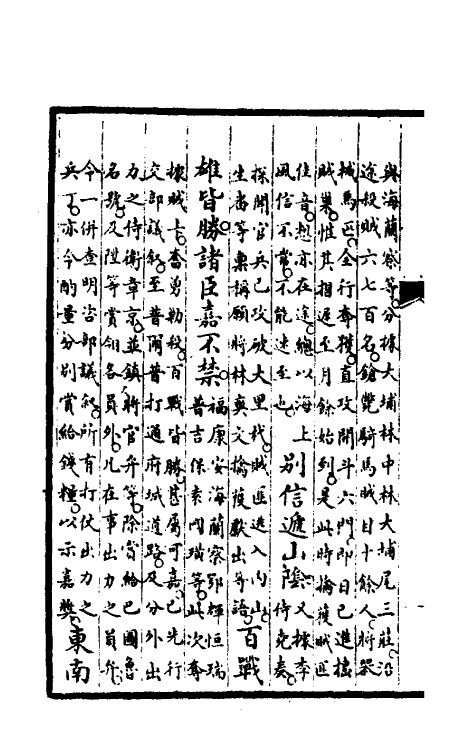 與海蘭察等分據大埔林中林大埔尾三莊沿
途殺賊六七百名鎗斃騎馬賊目十餘人將器
械馬匹全行奪獲直攻開斗六門即日已進搗
賊巢惟其相距至月餘始到是此時擒獲賊匪
佳音想亦在途總以海上
風信不常不能速至也
別信遞山陰
又據李
侍堯奏
探聞官兵已攻破大里杙賊匪逃入內山
生番等稟稱願將林爽文擒獲獻出等語
百戰
雄皆勝諸臣嘉不禁
福康安海蘭察鄂輝恒瑞
普吉保袁國璜等此次奪
據賊卡奮勇勦殺百戰皆勝甚屬可嘉已先行
交部議敘至普爾普打通府城道路及分外出
力之侍衛章京並鎮將官弁等除皆給巴圖魯
名號及陞等賞翎各員外凡在事出力之員弁
今一併查明咨部議敘所有打仗出力之
兵丁亦令酌量分別賞給錢糧以示嘉獎
東南